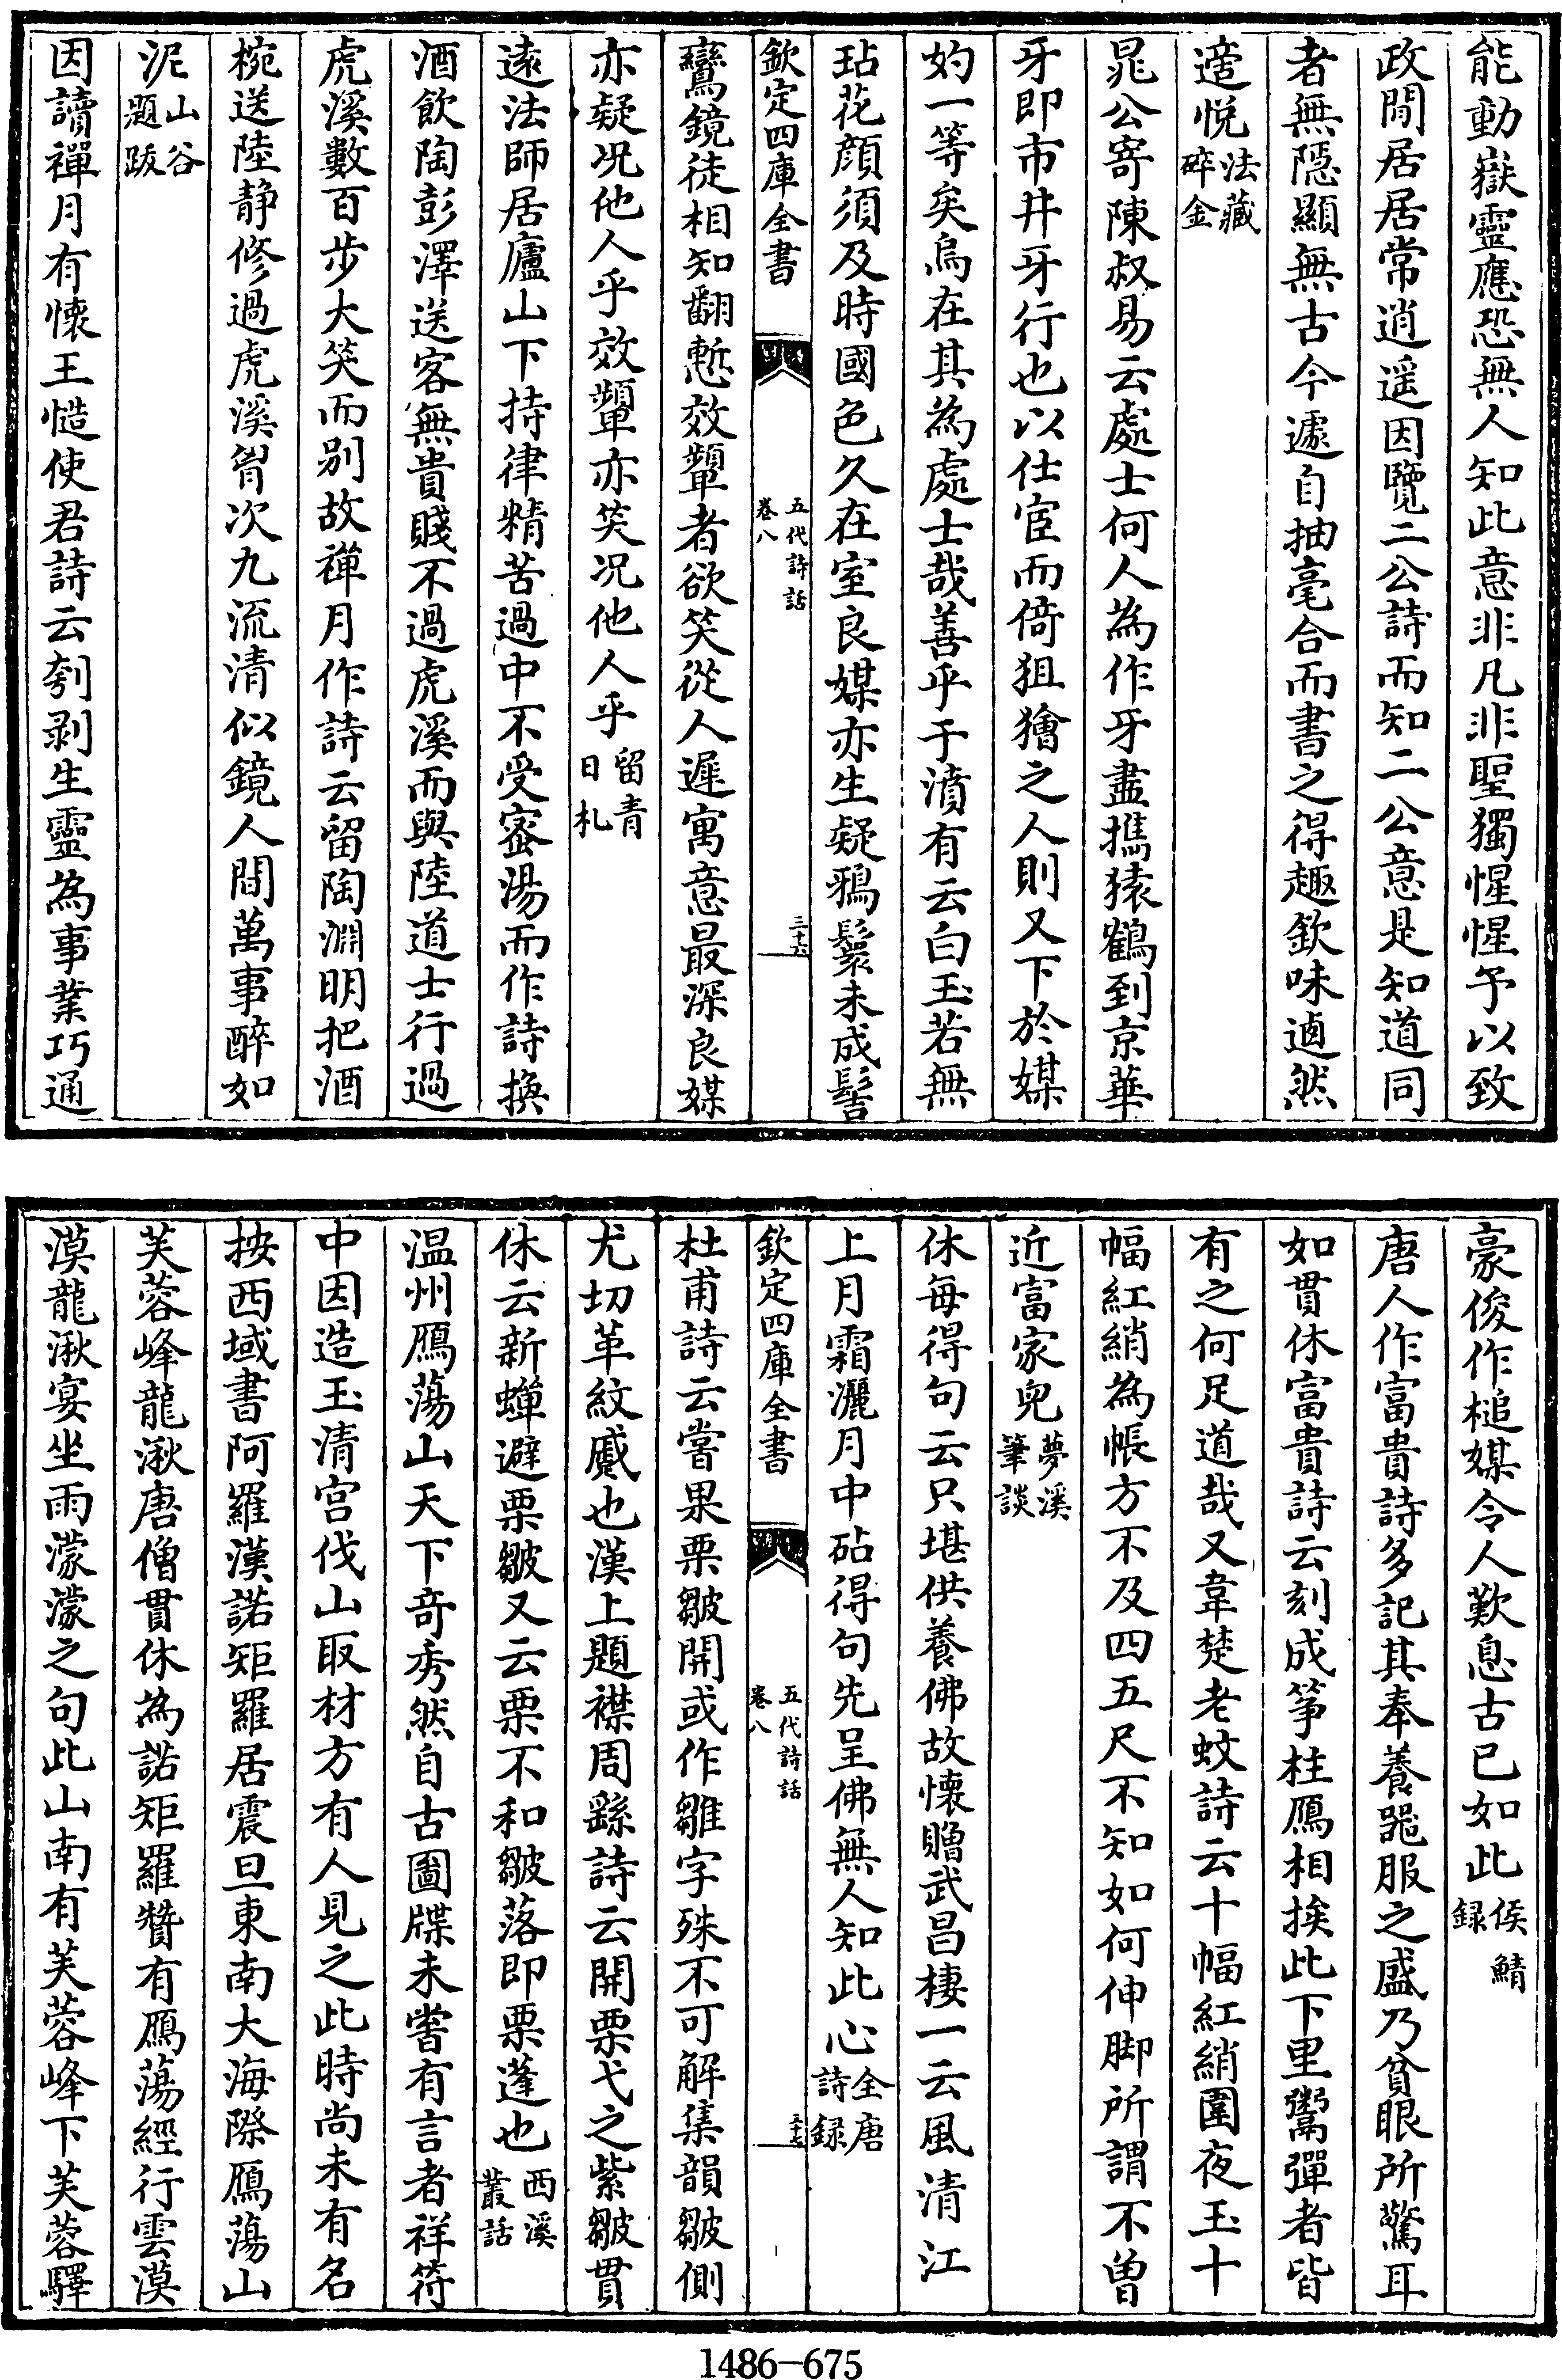 能動嶽靈應恐無人知此意非凡非聖獨惺惺予以致
政閒居居常逍遥因覽二公詩而知二公意是知道同
者無隱顯無古今遽自抽毫合而書之得趣欽味逌然
適悦法藏碎金
晁公寄陳叔易云處士何人為作牙盡攜猿鶴到京華
牙即市井牙行也以仕宦而倚狙獪之人則又下於媒
妁一等矣烏在其為處士哉善乎于濆有云白玉若無
玷花顔須及時國色久在室良媒亦生疑鴉鬟未成髻
欽定四庫全書 五代詩話 卷八 三十六
鸞鏡徒相知翻慙效顰者欲笑從人遲寓意最深良媒
亦疑况他人乎效顰亦笑况他人乎留青日札
逺法師居廬山下持律精苦過中不受蜜湯而作詩換
酒飲陶彭澤送客無貴賤不過虎溪而與陸道士行過
虎溪數百步大笑而别故禪月作詩云留陶淵明把酒
椀送陸静修過虎溪胷次九流清似鏡人間萬事醉如
泥山谷題跋
因讀禪月有懷王慥使君詩云刳剥生靈為事業巧通
豪俊作槌媒令人歎息古已如此侯鯖録
唐人作富貴詩多記其奉養器服之盛乃貧眼所驚耳
如貫休富貴詩云刻成筝柱鴈相挨此下里鬻彈者皆
有之何足道哉又韋楚老蚊詩云十幅紅綃圍夜玉十
幅紅綃為帳方不及四五尺不知如何伸脚所謂不曽
近富家兒夢溪筆談
休每得句云只堪供養佛故懷贈武昌棲一云風清江
上月霜灑月中砧得句先呈佛無人知此心全唐詩録
欽定四庫全書 五代詩話 卷八 三十七
杜甫詩云嘗果栗皺開或作雛字殊不可解集韻皺側
尤切革紋蹙也漢上題襟周繇詩云開栗弋之紫皺貫
休云新蟬避栗皺又云栗不和皺落即栗蓬也西溪叢話
温州鴈蕩山天下奇秀然自古圖牒未嘗有言者祥符
中因造玉清宫伐山取材方有人見之此時尚未有名
按西域書阿羅漢諾矩羅居震旦東南大海際鴈蕩山
芙蓉峰龍湫唐僧貫休為諾矩羅贊有鴈蕩經行雲漠
漠龍湫宴坐雨濛濛之句此山南有芙蓉峰下芙蓉驛
1486-675